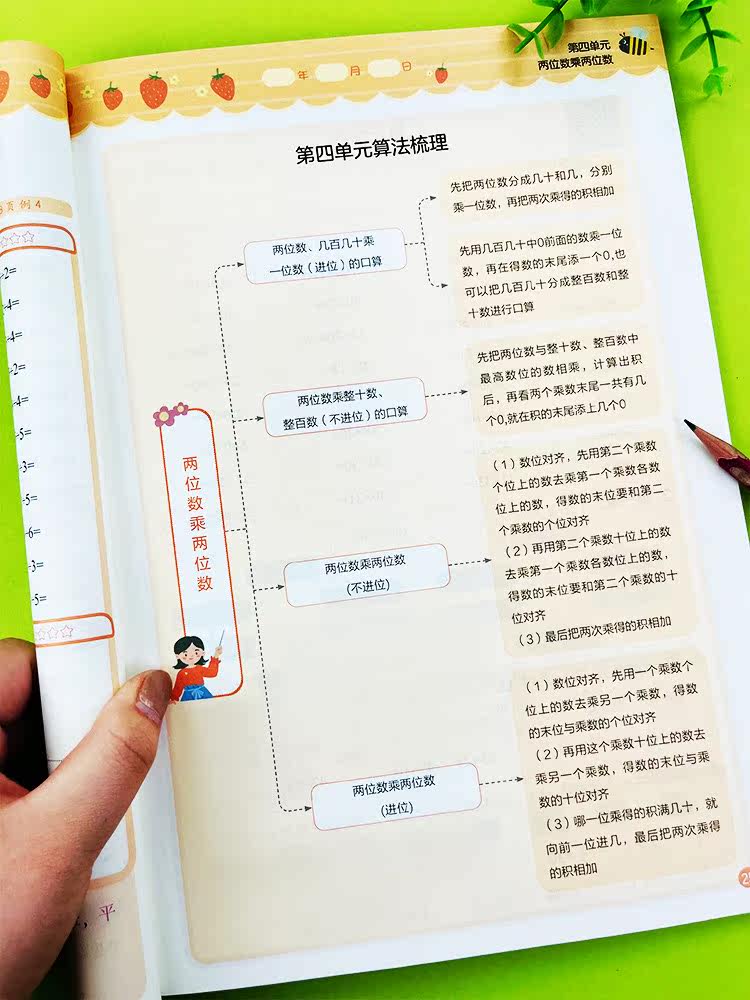 年 月 日
第四单元
两位数乘两位数
第四单元算法梳理
两位数乘两位数
两位数、几百几十乘
一位数（进位）的口算
先把两位数分成几十和几，分别
乘一位数，再把两次乘得的积相加
先用几百几十中0前面的数乘一位
数，再在得数的末尾添一个0,也
可以把几百几十分成整百数和整
十数进行口算
两位数乘整十数、
整百数（不进位）的口算
先把两位数与整十数、整百数中
最高数位的数相乘，计算出积
后，再看两个乘数末尾一共有几
个0,就在积的末尾添上几个0
两位数乘两位数
(不进位)
（1）数位对齐，先用第二个乘数
个位上的数去乘第一个乘数各数
位上的数，得数的末位要和第二
个乘数的个位对齐
（2）再用第二个乘数十位上的数
去乘第一个乘数各数位上的数，
得数的末位要和第二个乘数的十
位对齐
（3）最后把两次乘得的积相加
两位数乘两位数
(进位)
（1）数位对齐，先用一个乘数个
位上的数去乘另一个乘数，得数
的末位与乘数的个位对齐
（2）再用这个乘数十位上的数去
乘另一个乘数，得数的末位与乘
数的十位对齐
（3）哪一位乘得的积满几十，就
向前一位进几，最后把两次乘得
的积相加
页例4
2=
4=
4=
2=
4=
5=
3=
5=
6=
3=
5=
，平